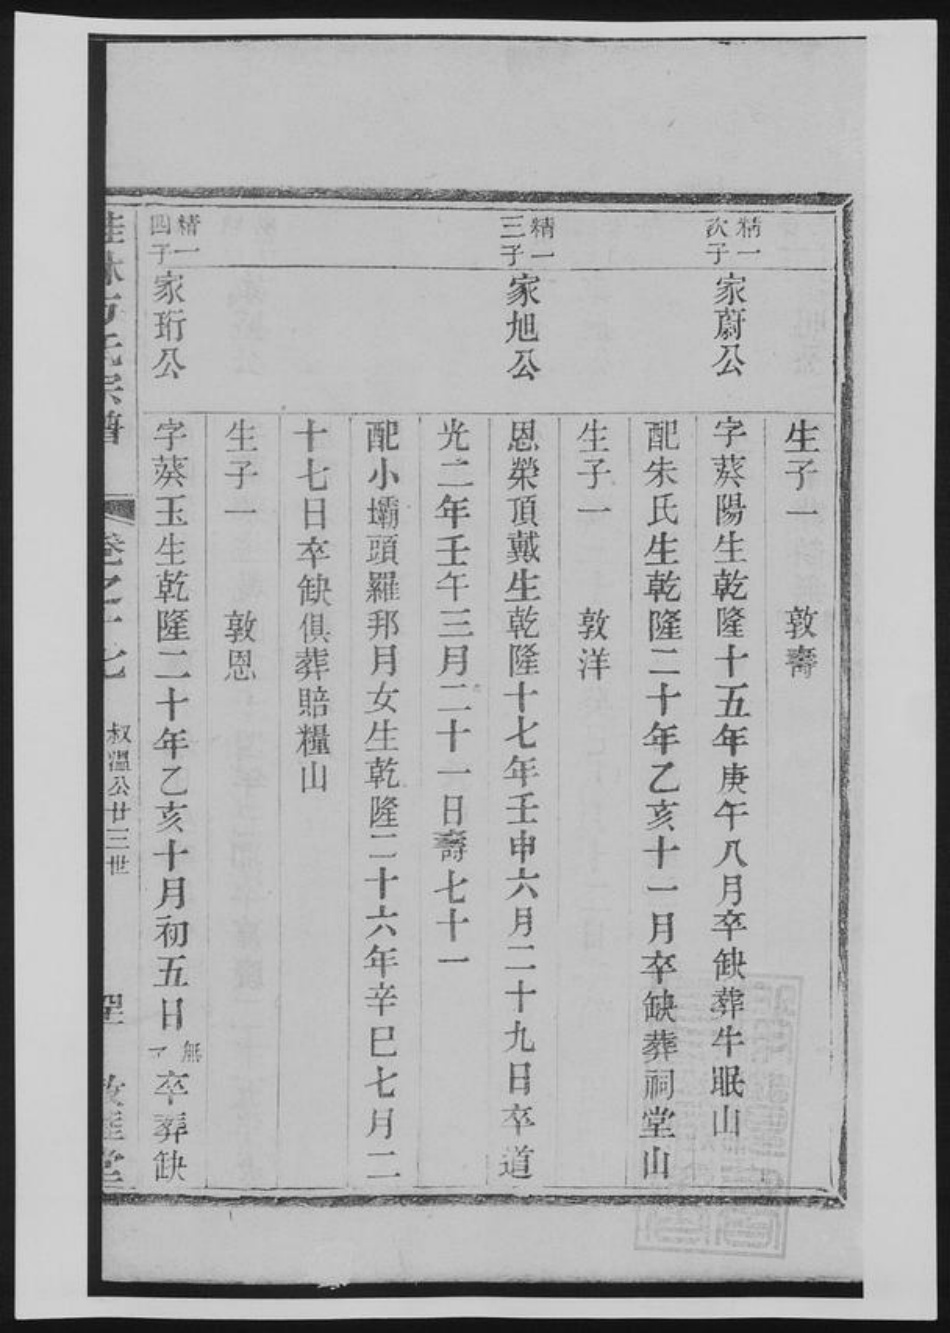 生子一　敦壽
精一
次子
家蔚公
字葵陽生乾隆十五年庚午八月卒缺葬牛眠山
配朱氏生乾隆二十年乙亥十一月卒缺葬祠堂山
生子一　敦洋
精一
三子
家旭公
恩榮頂戴生乾隆十七年壬申六月二十九日卒道
光二年壬午三月二十一日壽七十一
配小壩頭羅邦月女生乾隆二十六年辛巳七月二
十七日卒缺俱葬賠糧山
生子一　敦恩
精一
四子
家珩公
字葵玉生乾隆二十年乙亥十月初五日無子卒葬缺
桂林方氏宗譜
卷之十七
叔溫公廿三世